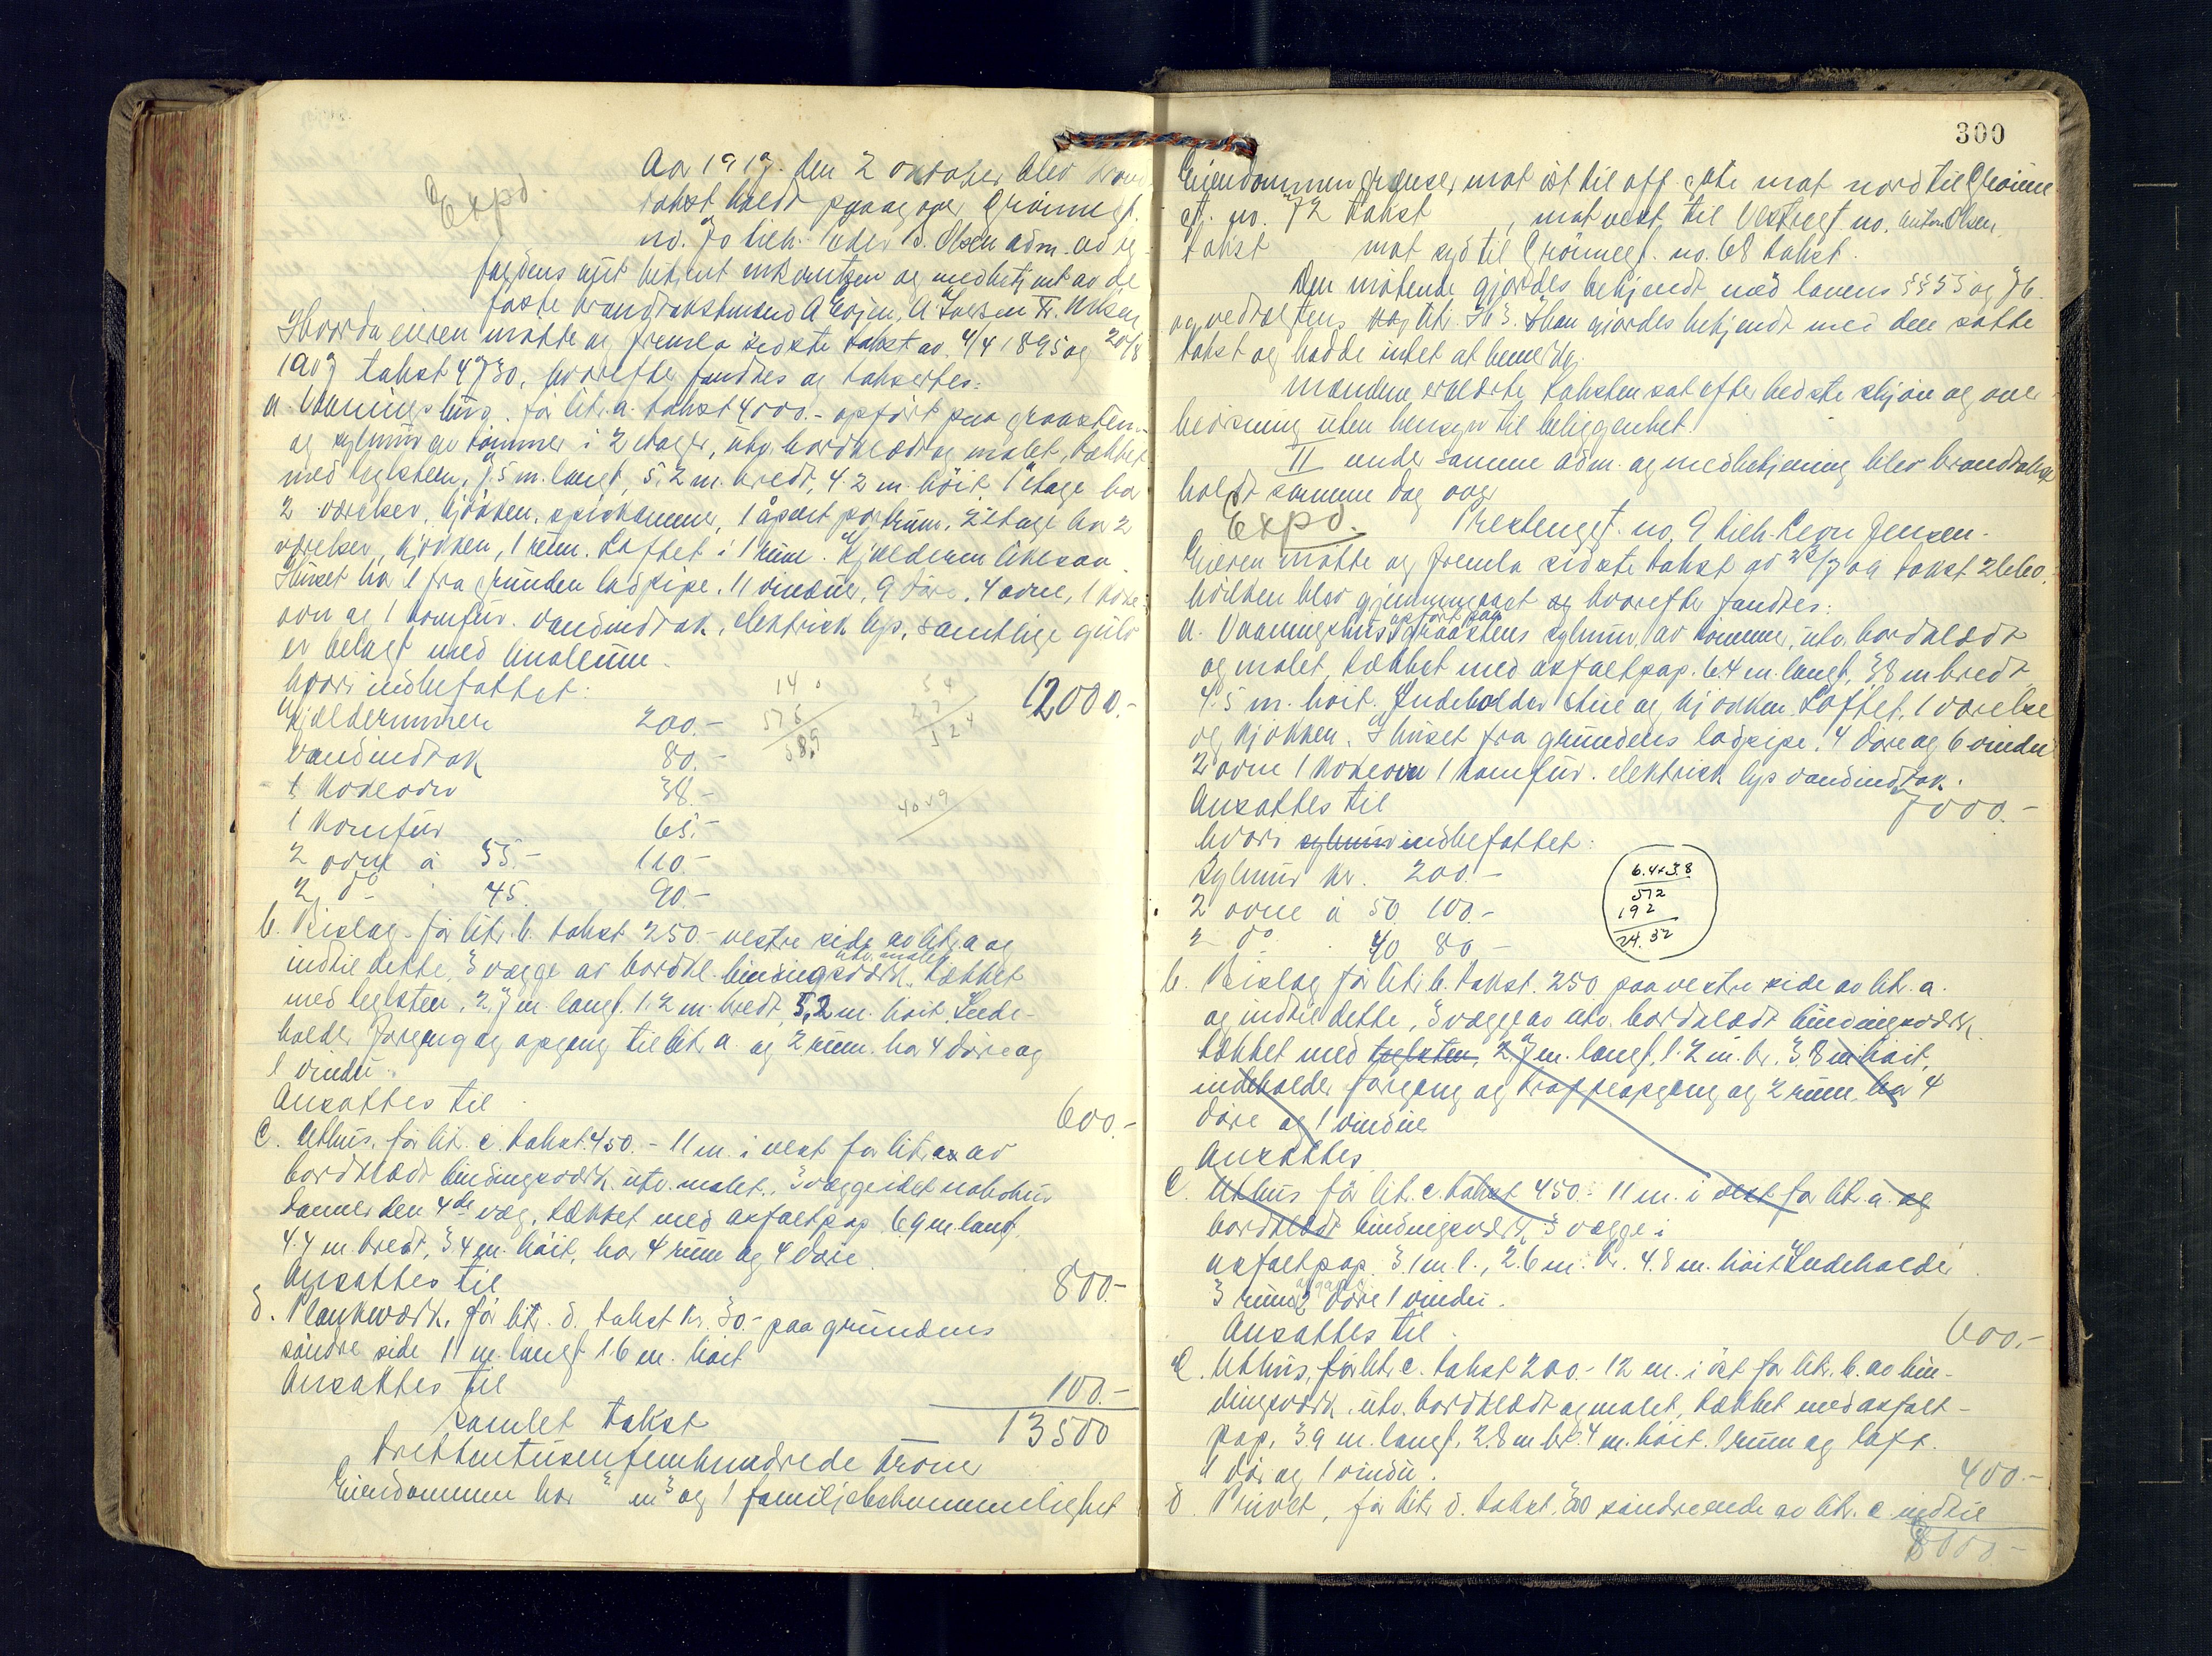 Expd.
Aar 1919. den 2 oktober blev brand
takst holdt paa og over Grönnegt.
no. 70 tilh. Peder B. Olsen adm. av
fogdens betjent og medbetjent av de
faste brandtakstmænd
Hvorda eieren mötte og fremla sidste takst av 4/4 1895 og 20/8
1907 takst 4730, hvorefter fandtes og taksertes:
a. Vaaningshus, för litr. a. takst 4000.- opfört paa graasten-
og sylmur av tömmer i 2 etager, utv. bordklædt og malet, tækket
med teglsten, 7.5 m. langt, 5.2 m. bredt, 4.2 m. höit 1 etage har
2 værelser, kjökken, spiskammer, 1 åpent portrum, 2 etage har 2
værelser, kjökken, 1 rum. Loftet i 1 rum. Kjelderen likesaa.
Huset har 1 fra grunden ladpipe, 11 vinduer, 9 döre, 4 ovne, 1 koke-
ovn og 1 komfur. vandindtak, elektrisk lys, samtlige gulv
er belagt med linoleum.
12000.-
hvori indbefattet:
Kjelderummen 200.-
vandindtak 80.-
1 kokeovn 38.-
1 komfur 65.-
2 ovne à 55.- 110.-
2 do 45. 90.-
b. Bislag, för litr. b. takst 250.- vestre side av litr. a og
indtil dette, 3 vægge av bordkl. bindingsværk utv. malet, tækket
med teglsten, 2.7 m. langt, 1.2 m. bredt, 5,2 m. höit. Inde-
holder forgang og opgang til litr. a. og 2 rum. har 4 döre og
1 vindu.
Ansattes til 600.-
c. Uthus, för litr. c. takst 450.- 11 m. i vest for litr. a av
bordklædt bindingsværk, utv. malet, 3 vægge idet nabohus
danner den 4de væg, tækket med asfaltpap 6.9 m. langt,
4.4 m. bredt, 3.4 m. höit, har 4 rum og 4 döre.
Ansattes til 800.-
d. Plankværk, för litr. d. takst kr. 30.- paa grundens
söndre side 11 m. langt 1.6 m. höit
Ansattes til 100.-
Samlet takst 13500
trettentusenfemhundrede kroner
Eiendommen har m3 og 1 familjebekvemmelighet
300
Eiendommen grænser mot öst til off. gate mot nord til Grönne
gt. no. 72 takst , mot vest til Vestregt no. Anton Olsen
takst mot syd til Grönnegt. no. 68 takst.
Den mötende gjordes bekjendt med lovens §§ 35 og 36.
og vedtægtens Han gjordes bekjendt med den satte
takst og hadde intet at bemerke.
Mændene erklærte taksten sat efter bedste skjön og over
bevisning uten hensyn til beliggenhet.
II under samme adm. og medbetjening blev brandtakst
holdt samme dag over
Expd.
Prestengt. no. 9 tilh. Peon Jensen.
Eieren mötte og fremla sidste takst av 28/7 09 takst 2660.
hvilken blev gjennemgaat og hvorefter fandtes:
a. Vaaningshus opfört paa graastens sylmur av tömmer, utv. bordklædt
og malet, tækket med asfaltpap. 6.4 m. langt, 3.8 m bredt,
4.5 m. höit. Indeholder stue og kjökken. Loftet, 1 værelse
og kjökken. I huset fra grundens ladpipe. 4 döre og 6 vindu
2 ovne 1 kokeovn 1 komfur. elektrisk lys vandindtak.
Ansattes til 7000.-
hvori sylmur indbefattet:
Sylmur kr. 200.-
2 ovne à 50 100.-
2 do 40 80.-
6.4×3.8
512
192
24.32
b. Bislag för litr. b. takst. 250 paa vestre side av litr. a.
og indtil dette, 3 vægge av utv. bordklædt bindingsværk
tækket med teglsten, 2.7 m. langt, 1.2 m. br. 3.8 m höit,
indeholder forgang og trappeopgang og 2 rum. har 4
döre og 1 vindue
Ansattes
c. Uthus för litr. c. takst 450.- 11 m. i vest for litr. a. og
bordklædt bindingsværk, 3 vægge i
asfaltpap 3.1 m. l., 2.6 m. br. 4.8 m. höit Indeholder
3 rum 2 döre 1 vindu.
Ansattes til 600.-
c. Uthus, för litr. c. takst 200.- 12 m. i öst for litr. b. av bin-
dingsværk. utv. bordklædt og malet, tækket med asfalt-
pap, 3.9 m. langt, 2.8 m br. 4 m. höit. 1 rum og loft.
1 dör og 1 vindu. 400.-
d. Privet, för litr. d. takst. 200 söndre ende av litr. c. indtil
8000.-